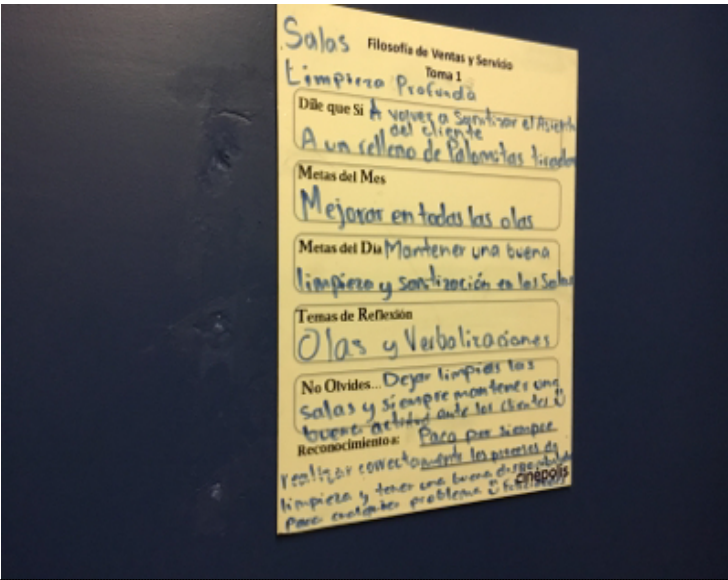 Salas Filosofía de Ventas y Servicio
Toma 1
Limpieza Profunda
Dile que Si A volver a Sanitizar el Asiento
del cliente
A un relleno de Palomitas tiradas
Metas del Mes
Mejorar en todas las olas
Metas del Día Mantener una buena
limpieza y sanitización en las Salas
Temas de Reflexión
Olas y Verbalizaciones
No Olvides... Dejar limpias las
salas y siempre mantener una
buena actitud ante los clientes
Reconocimiento a: Paco por siempre
realizar correctamente los procesos de
limpieza y tener una buena disponibilidad
cinépolis
para cualquier problema